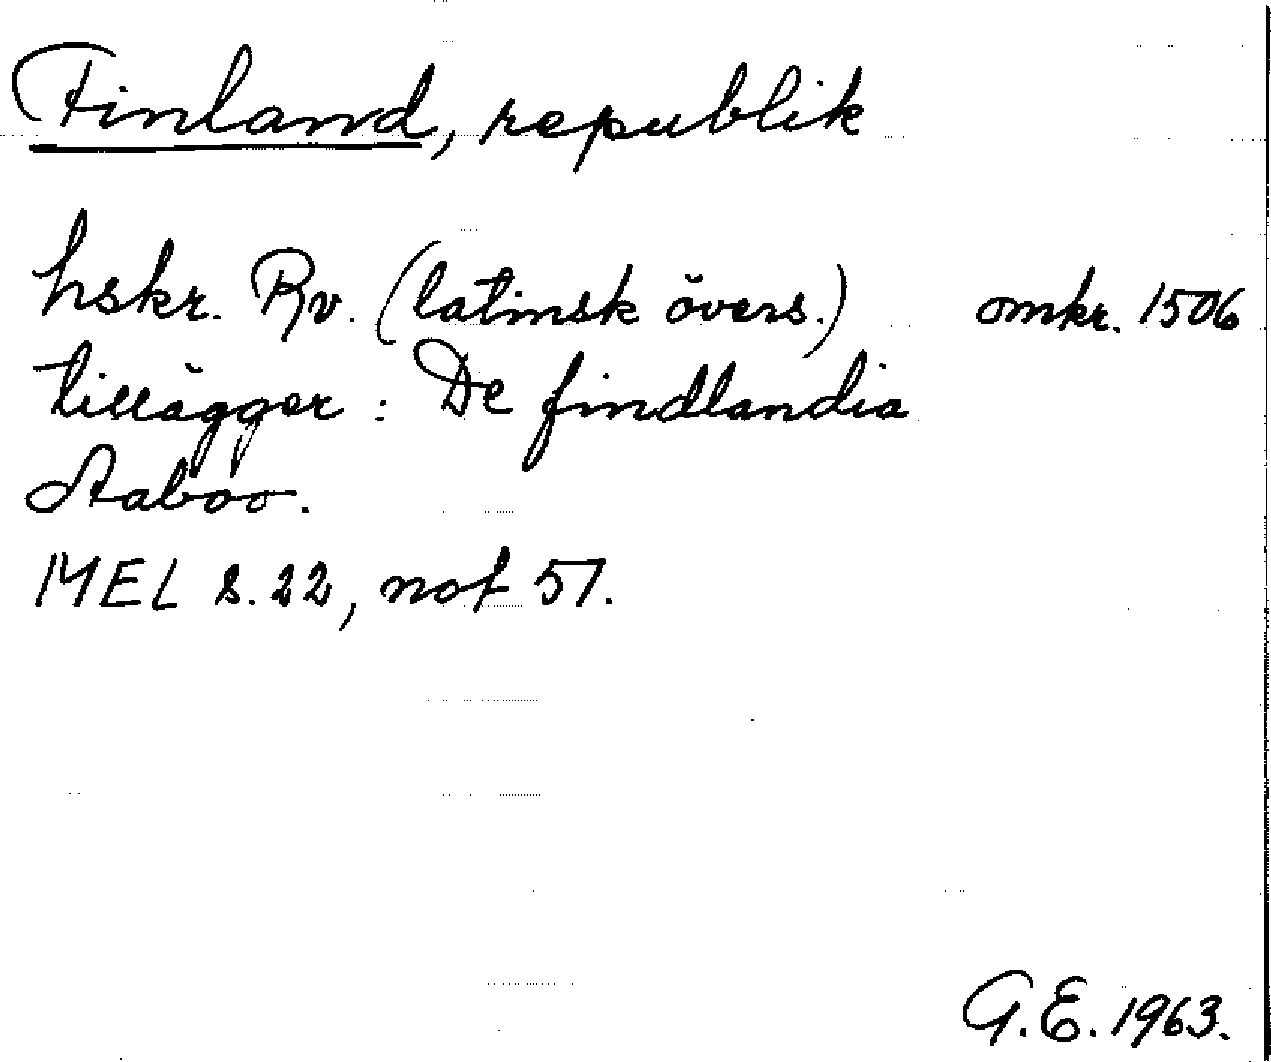 Finland, republik
hskr. Rv. (latinsk övers.) omkr. 1506
tillägger: De findlandia
Aaboo.
MEL s. 22, not 51.
G.E. 1963.